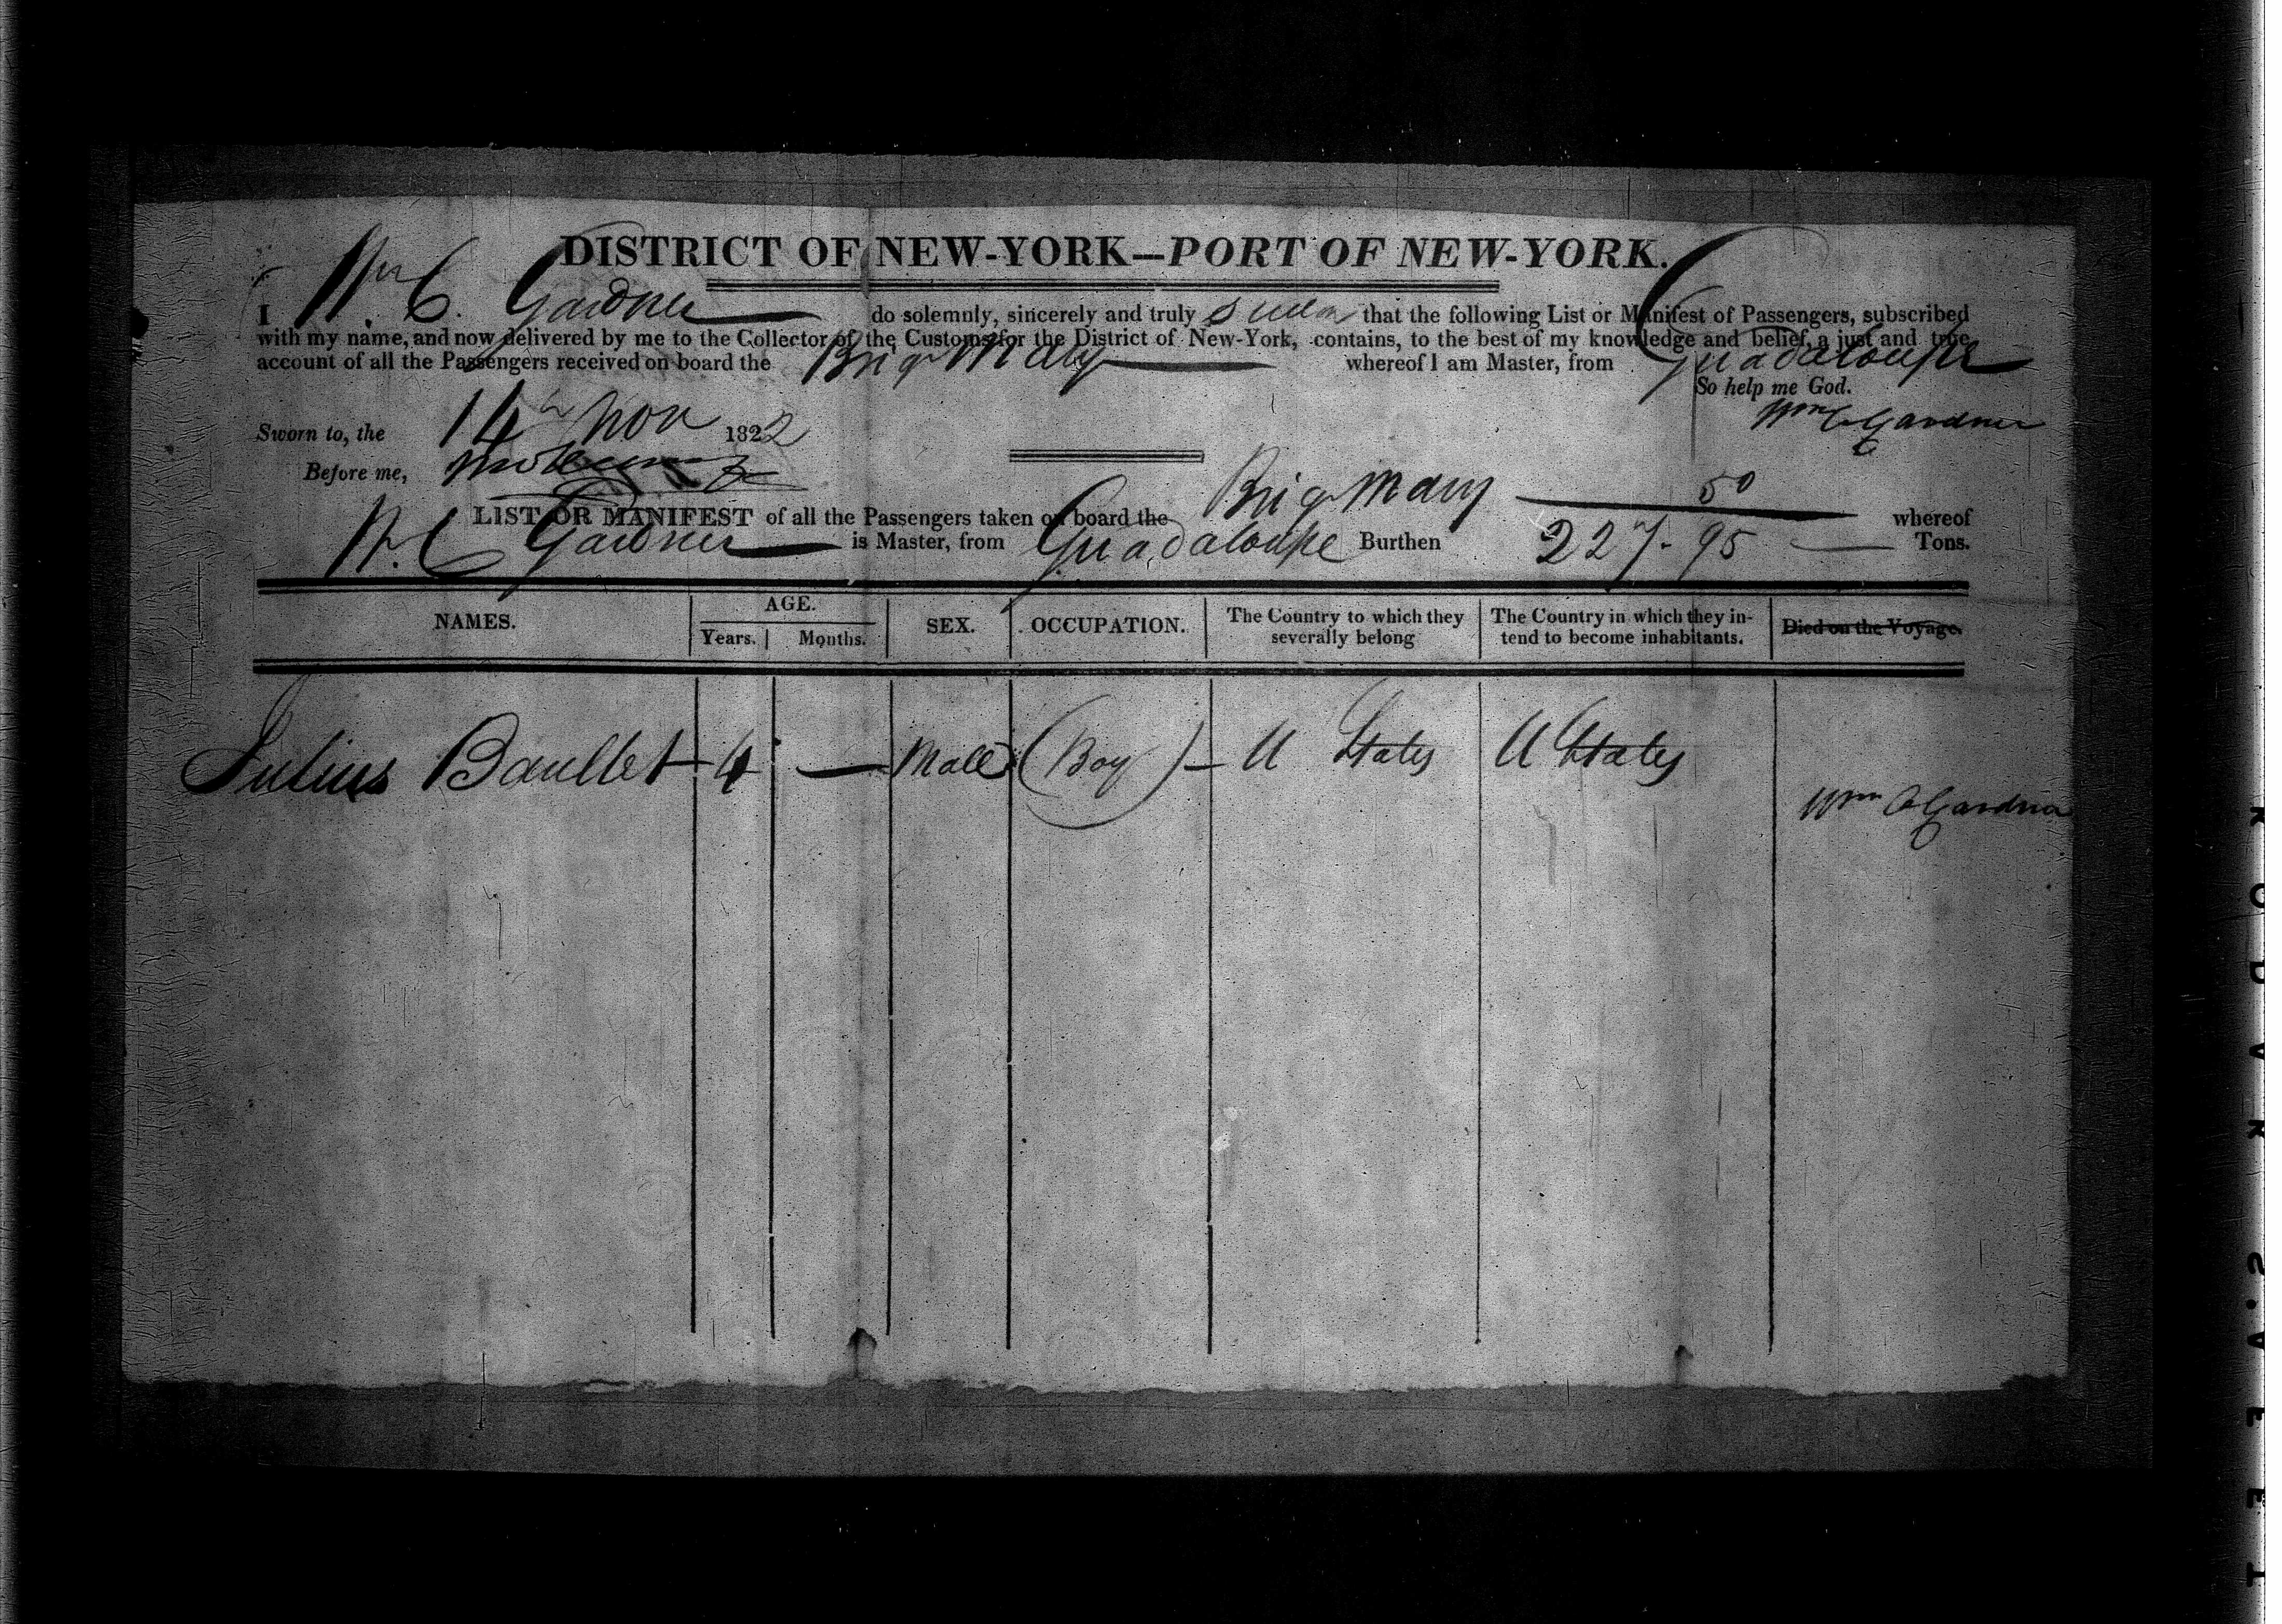 DISTRICT OF NEW-YORK—PORT OF NEW-YORK.
I Wm C. Gardner do solemnly, sincerely and truly swear that the following List or Manifest of Passengers, subscribed
with my name, and now delivered by me to the Collector of the Customs for the District of New-York, contains, to the best of my knowledge and belief, a just and true
account of all the Passengers received on board the Brig Mary whereof I am Master, from Guadaloupe
So help me God.
Sworn to, the 14th Nov 1822 Wm C Gardner
Before me,
LIST OR MANIFEST of all the Passengers taken on board the Brig Mary whereof
W. C Gardner is Master, from Guadaloupe Burthen 227. 50 95 Tons.
NAMES. AGE. Years. Months. SEX. OCCUPATION. The Country to which they severally belong The Country in which they intend to become inhabitants. Died on the Voyage.
Julius Baullet 4 — Male (Boy) — U States U States
Wm C Gardner
KODAK SAFETY